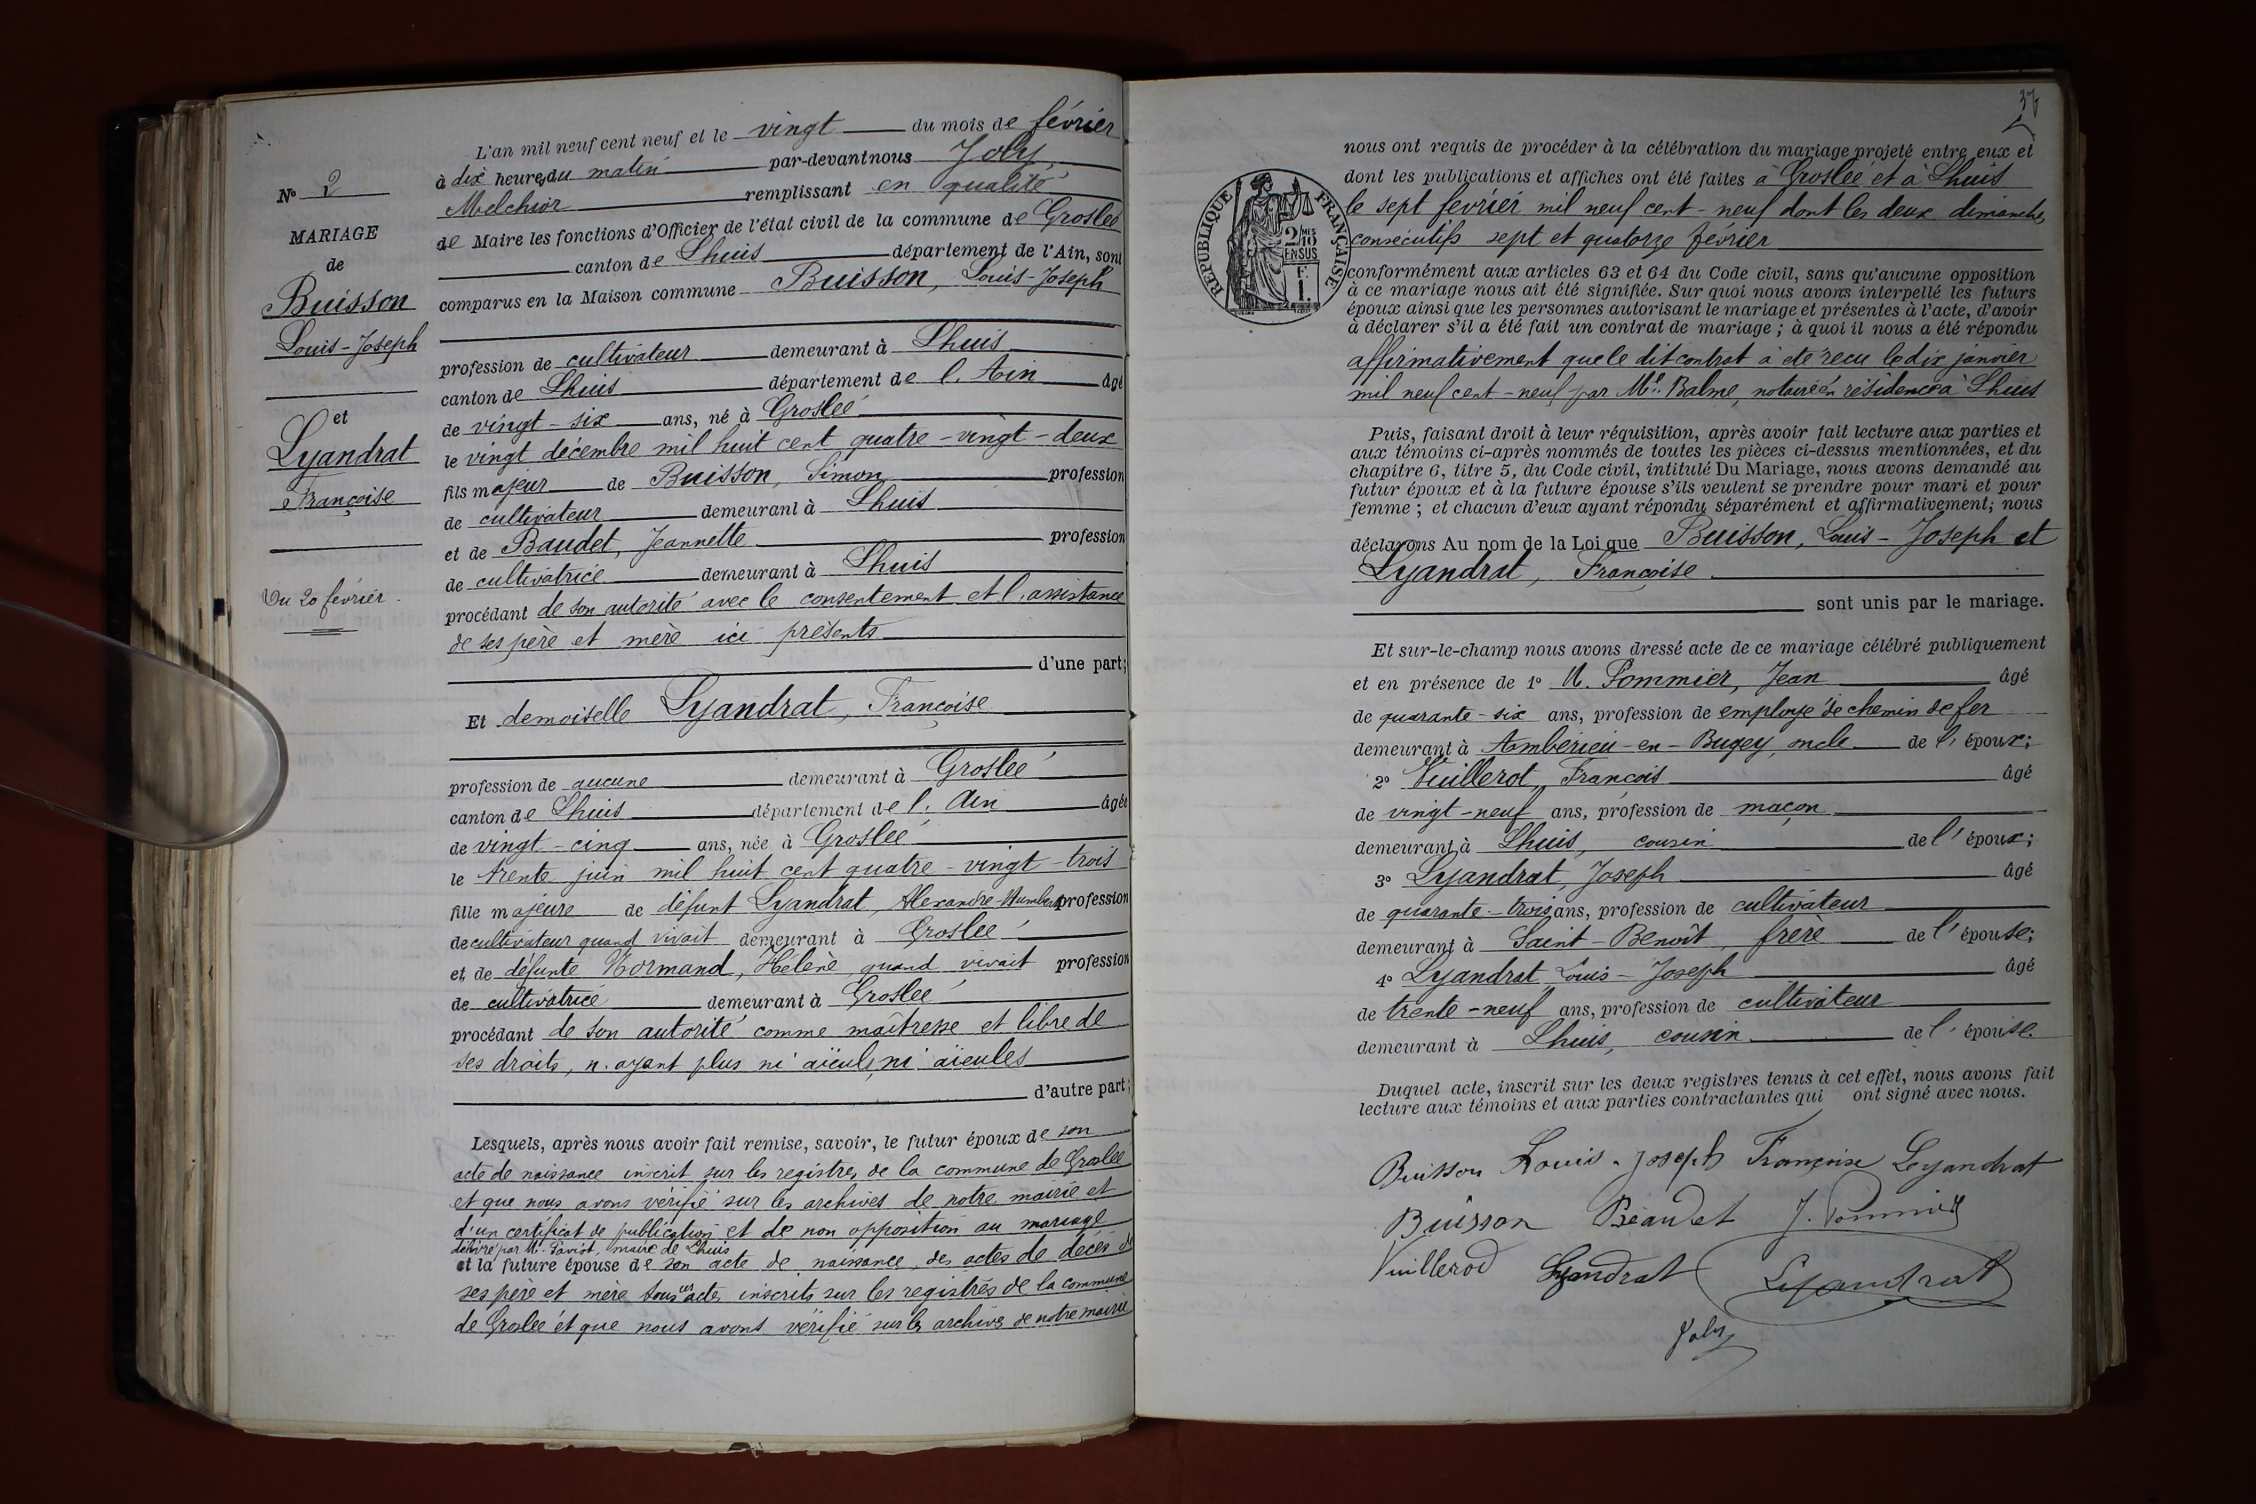 N° 2
MARIAGE
de
Buisson
Louis-Joseph
et
Lyandrat
Françoise
Du 20 février.
L'an mil neuf cent neuf et le vingt du mois de février
à dix heures du matin par-devant nous Joly,
Melchior remplissant en qualité
de Maire les fonctions d'Officier de l'état civil de la commune de Groslée
canton de Lhuis département de l'Ain, sont
comparus en la Maison commune Buisson, Louis-Joseph
profession de cultivateur demeurant à Lhuis
canton de Lhuis département de l'Ain âgé
de vingt-six ans, né à Groslée
le vingt décembre mil huit cent quatre-vingt-deux
fils majeur de Buisson, Simon profession
de cultivateur demeurant à Lhuis
et de Baudet, Jeannette profession
de cultivatrice demeurant à Lhuis
procédant de son autorité avec le consentement et l'assistance
de ses père et mère ici présents
d'une part;
Et demoiselle Lyandrat, Françoise
profession de aucune demeurant à Groslée
canton de Lhuis département de l'Ain âgée
de vingt-cinq ans, née à Groslée
le trente juin mil huit cent quatre-vingt-trois
fille majeure de défunt Lyandrat, Alexandre-Humbert profession
de cultivateur quand vivait demeurant à Groslée
et de défunte Normand, Hélène quand vivait profession
de cultivatrice demeurant à Groslée
procédant de son autorité comme maîtresse et libre de
ses droits, n'ayant plus ni aïeuls, ni aïeules
d'autre part;
Lesquels, après nous avoir fait remise, savoir, le futur époux de son
acte de naissance inscrit sur les registres de la commune de Groslée
et que nous avons vérifié sur les archives de notre mairie et
d'un certificat de publication et de non opposition au mariage
délivré par M. Paviot, maire de Lhuis
et la future épouse de son acte de naissance, des actes de décès de
ses père et mère tous ces actes inscrits sur les registres de la commune
de Groslée et que nous avons vérifié sur les archives de notre mairie
37
RÉPUBLIQUE FRANÇAISE
2/10
MES
EN SUS
F.
1.
nous ont requis de procéder à la célébration du mariage projeté entre eux et
dont les publications et affiches ont été faites à Groslée et à Lhuis
le sept février mil neuf cent-neuf dont les deux dimanches
consécutifs sept et quatorze février
conformément aux articles 63 et 64 du Code civil, sans qu'aucune opposition
à ce mariage nous ait été signifiée. Sur quoi nous avons interpellé les futurs
époux ainsi que les personnes autorisant le mariage et présentes à l'acte, d'avoir
à déclarer s'il a été fait un contrat de mariage; à quoi il nous a été répondu
affirmativement que le dit contrat à été recu le dix janvier
mil neuf cent-neuf par Me. Balme, notaire en résidence à Lhuis
Puis, faisant droit à leur réquisition, après avoir fait lecture aux parties et
aux témoins ci-après nommés de toutes les pièces ci-dessus mentionnées, et du
chapitre 6, titre 5, du Code civil, intitulé Du Mariage, nous avons demandé au
futur époux et à la future épouse s'ils veulent se prendre pour mari et pour
femme; et chacun d'eux ayant répondu séparément et affirmativement; nous
déclarons Au nom de la Loi que Buisson, Louis-Joseph et
Lyandrat, Françoise
sont unis par le mariage.
Et sur-le-champ nous avons dressé acte de ce mariage célébré publiquement
et en présence de 1° M. Pommier, Jean âgé
de quarante-six ans, profession de employé de chemin de fer
demeurant à Ambérieu-en-Bugey, oncle de l'époux;
2° Vuillerot, François âgé
de vingt-neuf ans, profession de maçon
demeurant à Lhuis, cousin de l'époux;
3° Lyandrat, Joseph âgé
de quarante-trois ans, profession de cultivateur
demeurant à Saint-Benoît, frère de l'épouse;
4° Lyandrat Louis-Joseph âgé
de trente-neuf ans, profession de cultivateur
demeurant à Lhuis, cousin de l'épouse.
Duquel acte, inscrit sur les deux registres tenus à cet effet, nous avons fait
lecture aux témoins et aux parties contractantes qui ont signé avec nous.
Buisson Louis-Joseph Françoise Lyandrat
Buisson Beaudet J. Pommier
Vuillerod Lyandrat Lyandrat
Joly